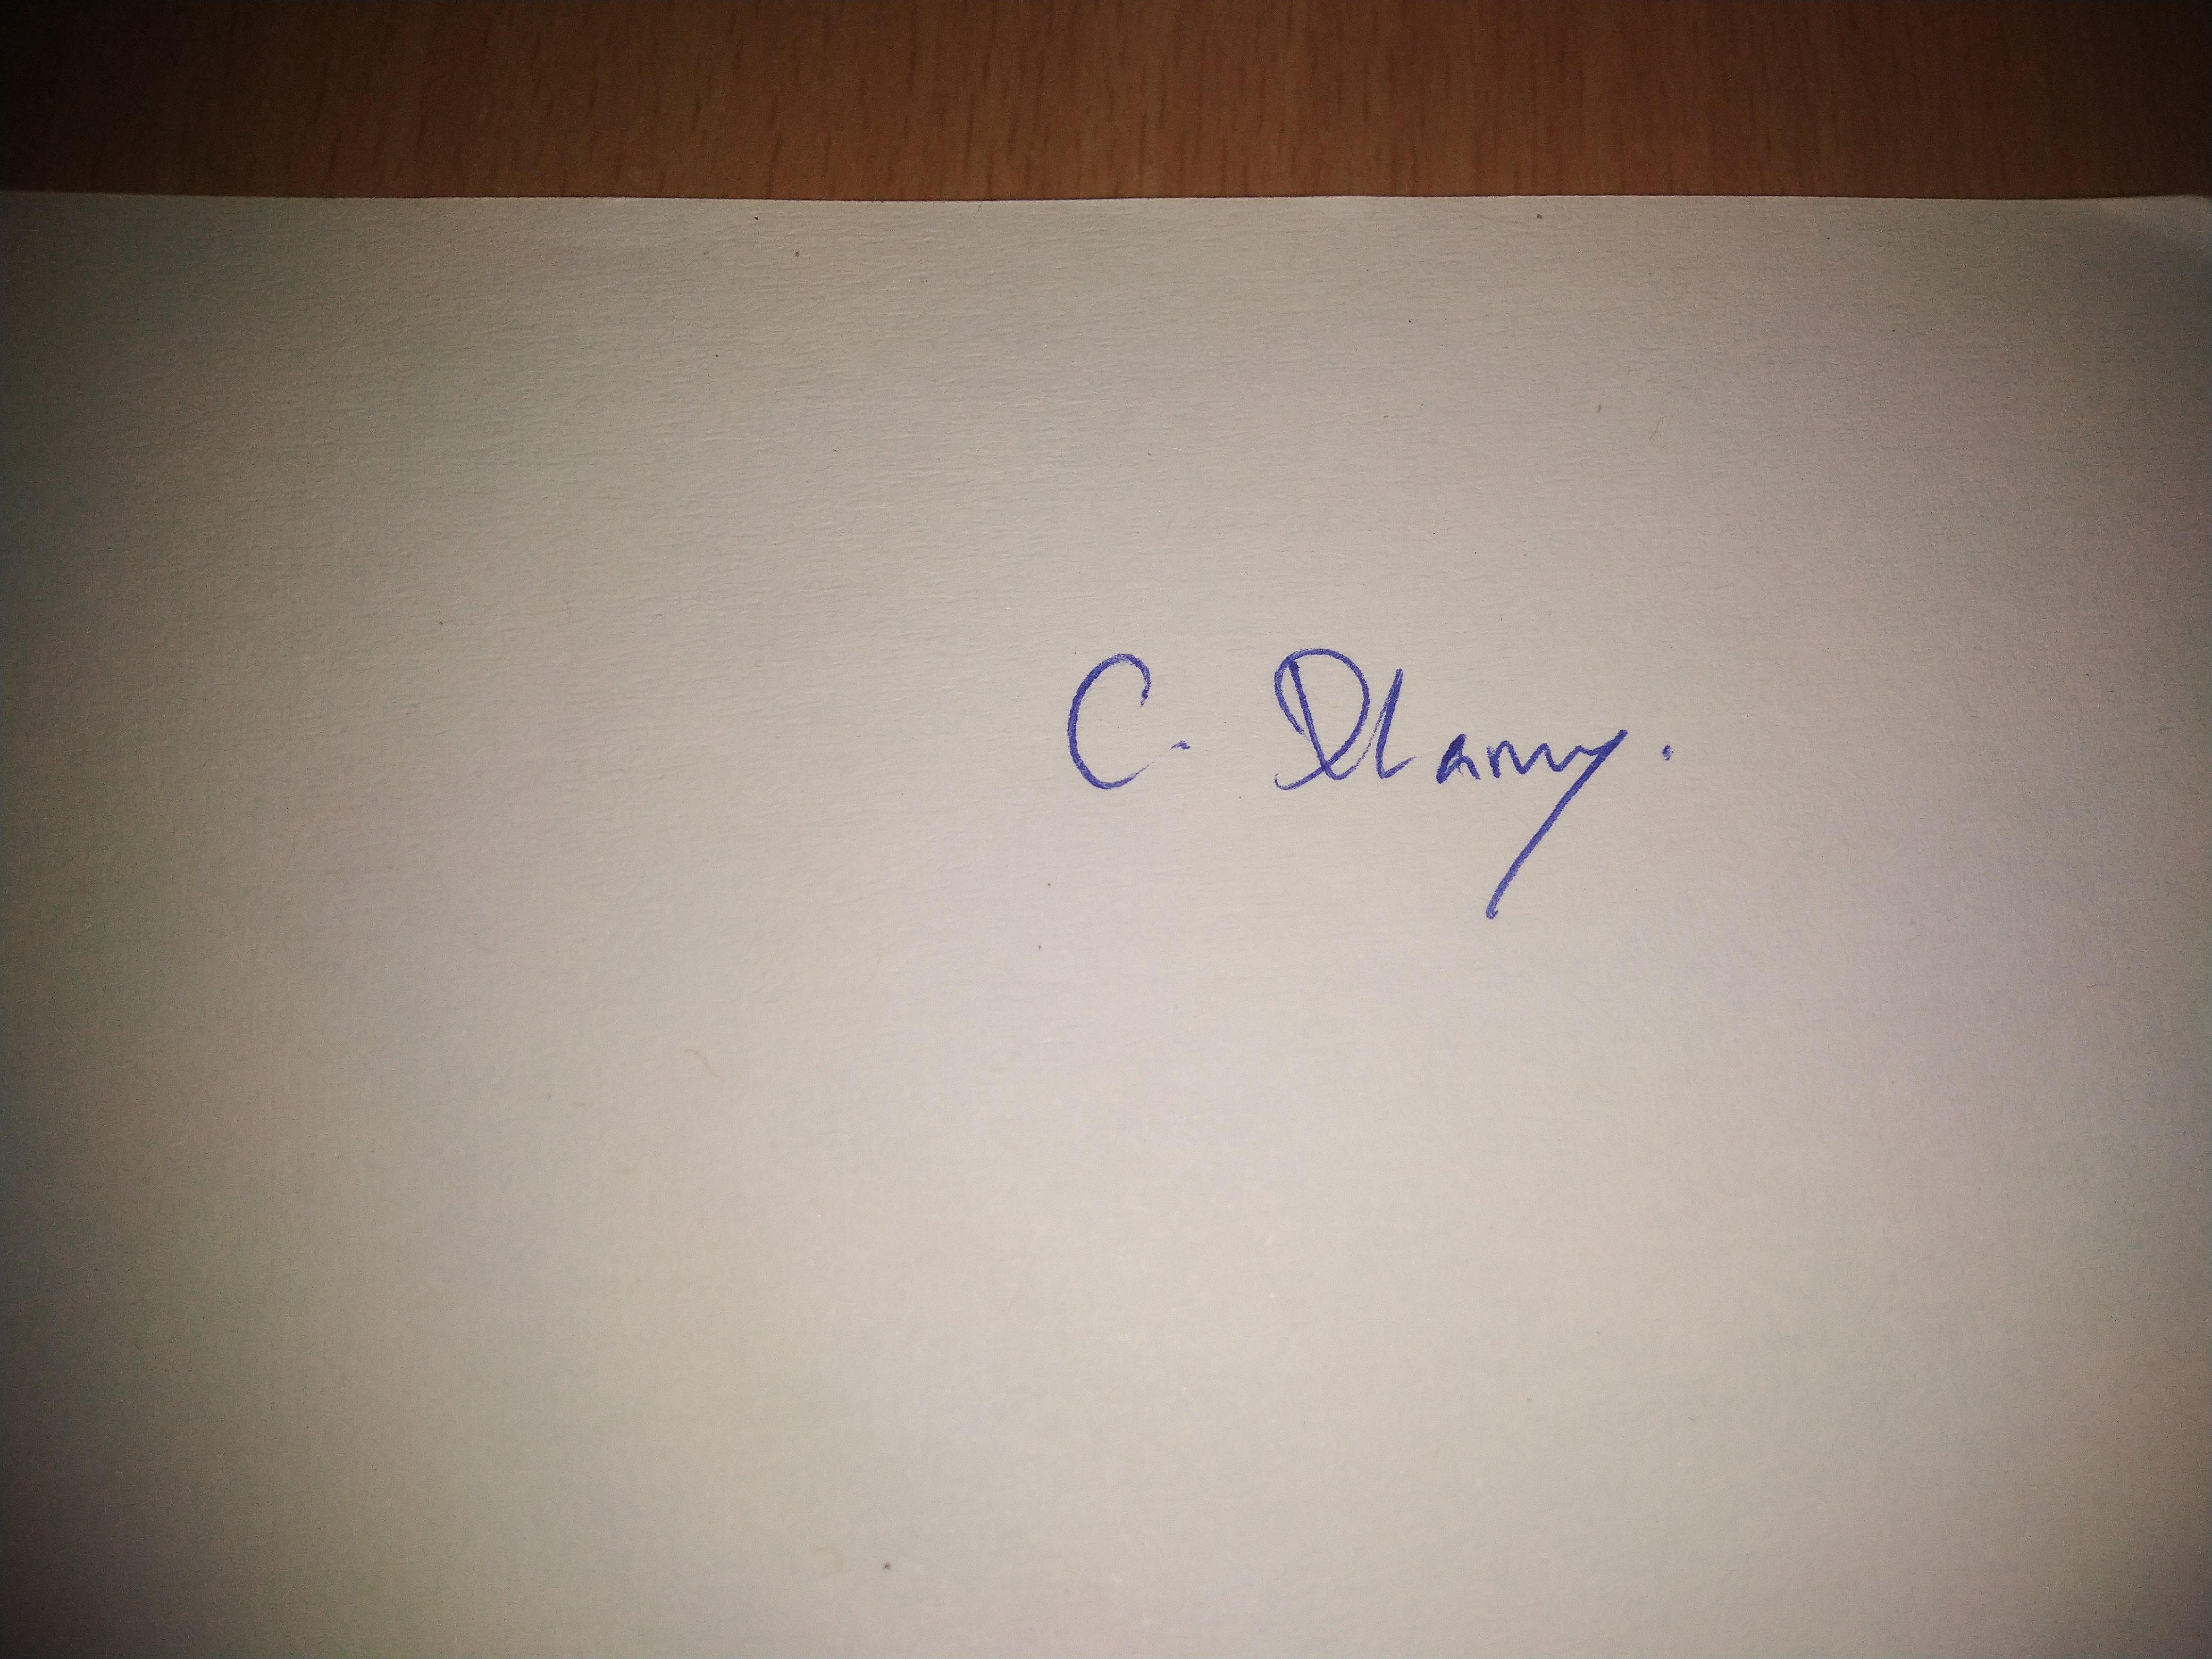 C. Dlamy.